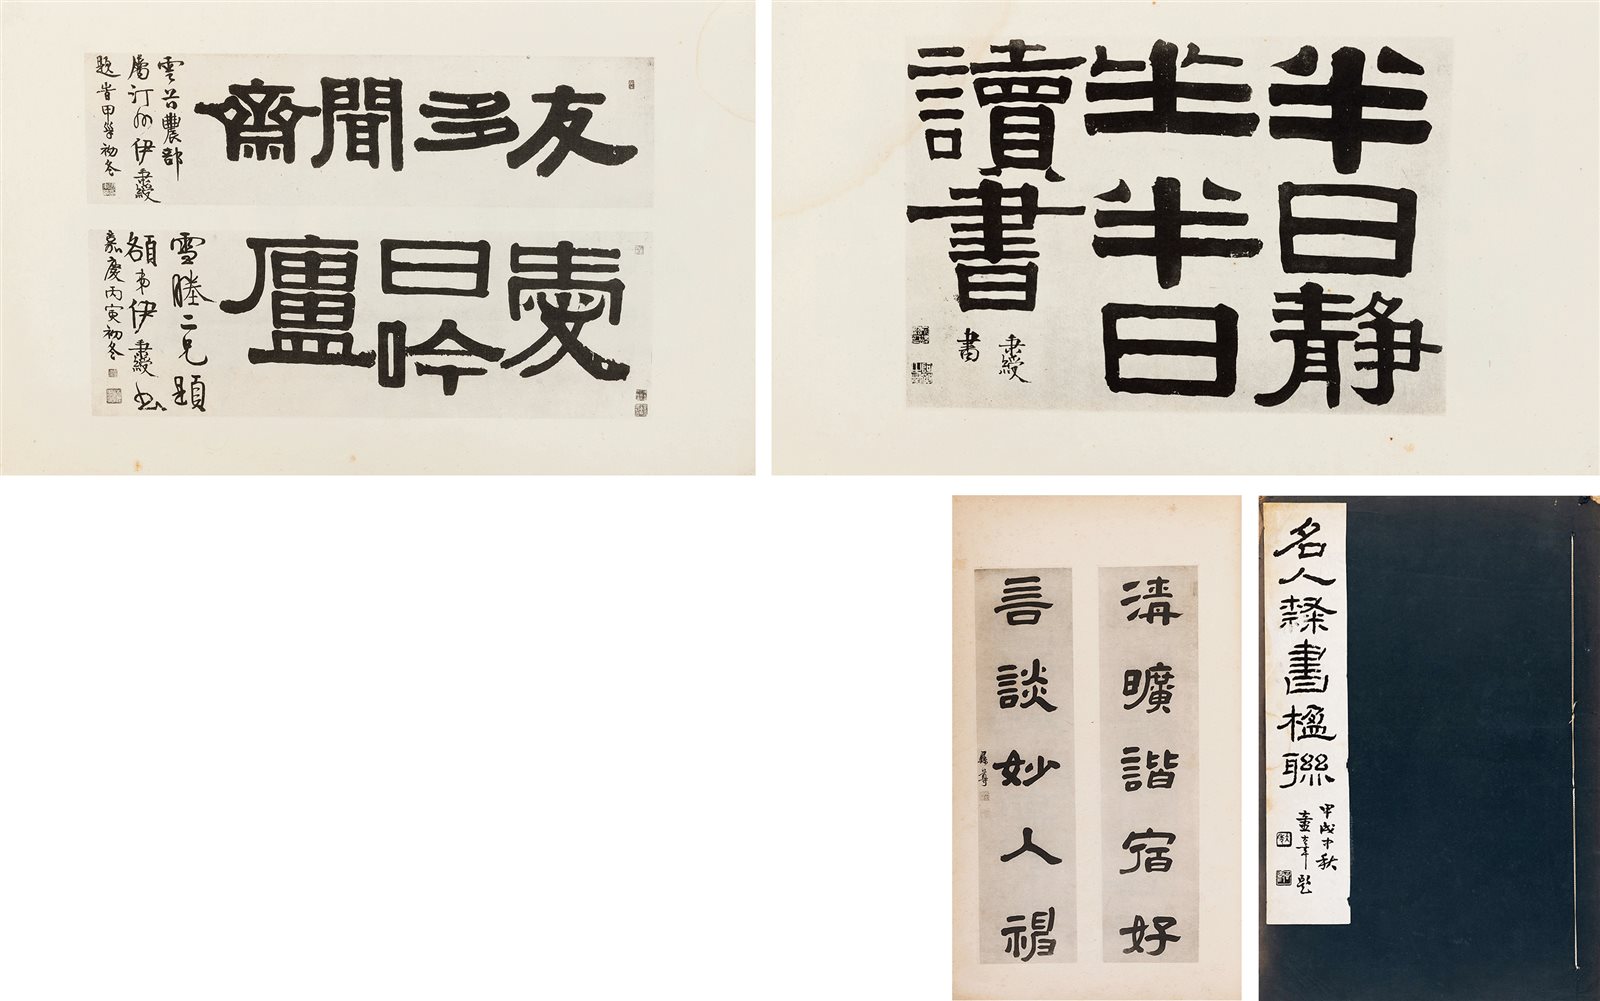 友多聞齋
雲谷農部
屬汀州伊秉綬
題旹甲初冬
愛日吟廬
雪塍二兄題
額弟伊秉綬書
嘉慶丙寅初冬
半日靜
坐半日
讀書
秉綬
書
清曠諧宿好
言談妙人
名人隸書楹聯
甲戌中秋
童大年題